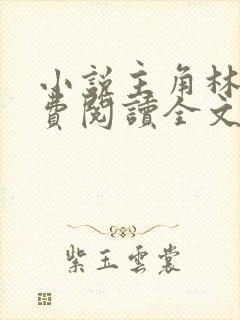 小說主角林
費閱讀全文
紫玉雲裳